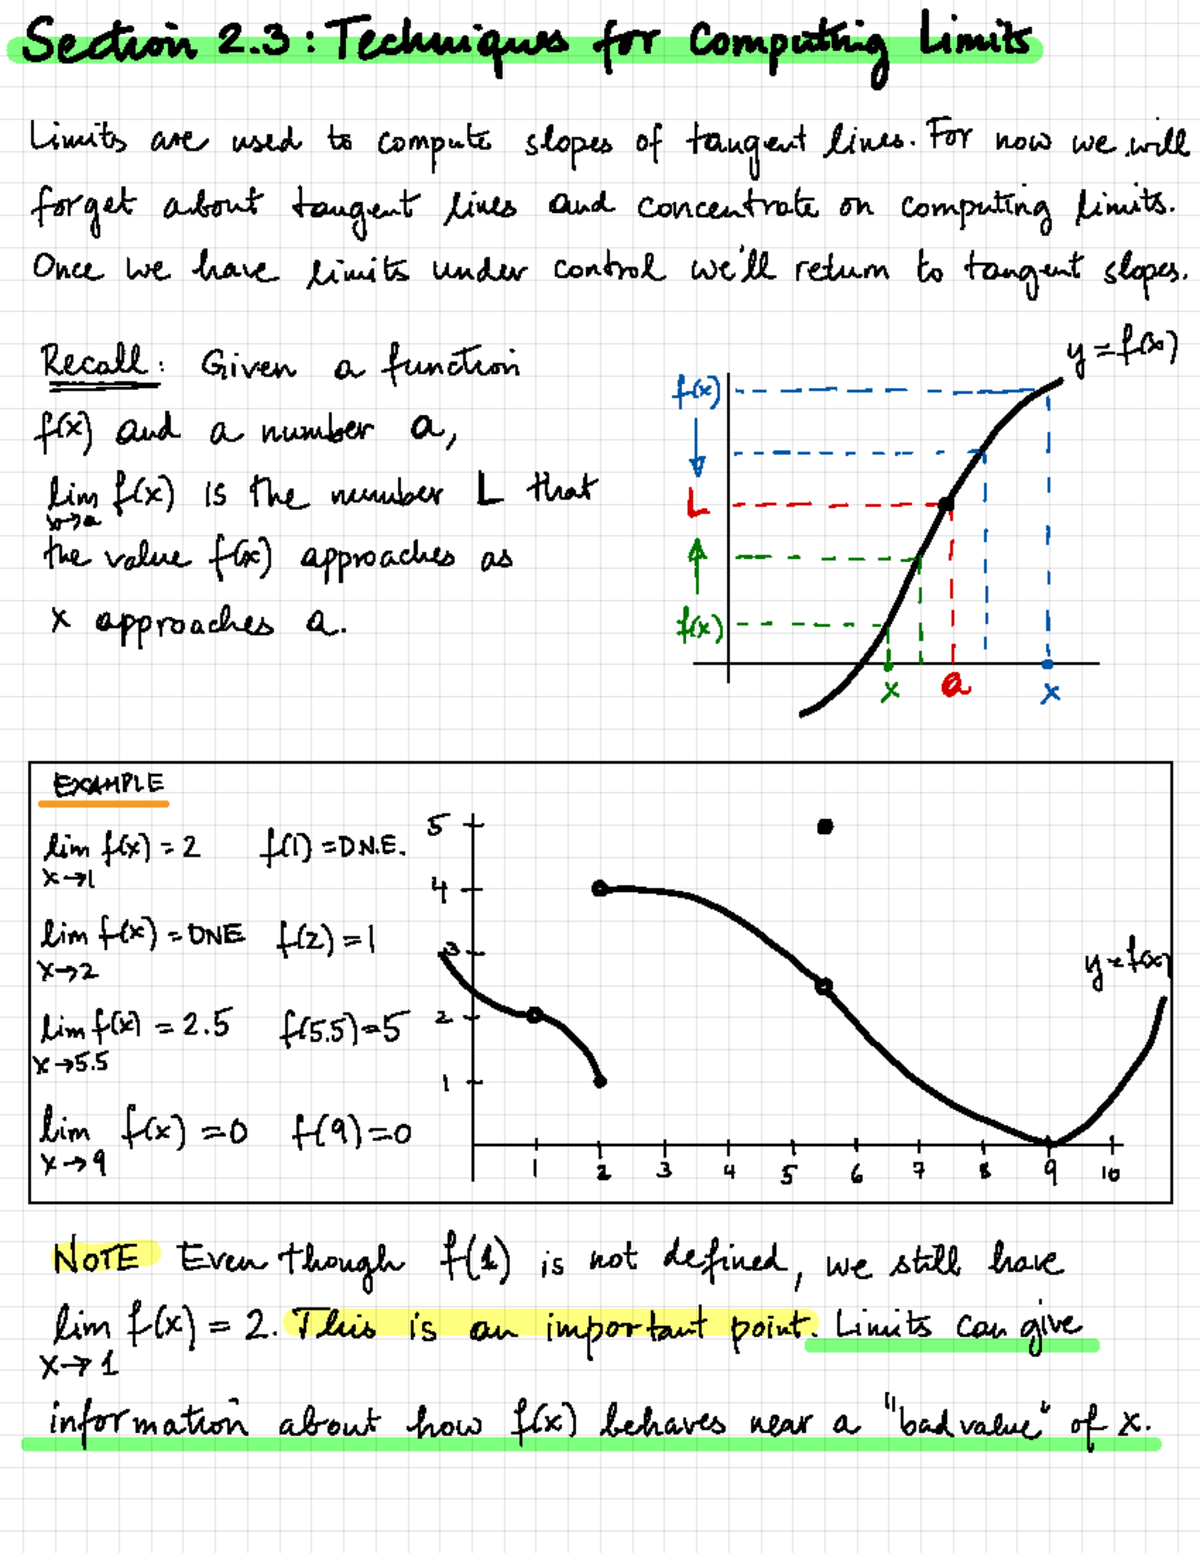 Section 2.3: Techniques for Computing Limits
Limits are used to compute slopes of tangent lines. For now we will
forget about tangent lines and concentrate on computing limits.
Once we have limits under control we'll return to tangent slopes.
Recall: Given a function
f(x) and a number a,
lim f(x) is the number L that
x→a
the value f(x) approaches as
x approaches a.
y = f(x)
f(x)
L
f(x)
x
a
x
EXAMPLE
lim f(x) = 2 f(1) = D.N.E.
x→1
lim f(x) = DNE f(2) = 1
x→2
lim f(x) = 2.5 f(5.5) = 5
x→5.5
lim f(x) = 0 f(9) = 0
x→9
5
4
3
2
1
1 2 3 4 5 6 7 8 9 10
y = f(x)
NOTE Even though f(1) is not defined, we still have
lim f(x) = 2. This is an important point. Limits can give
x→1
information about how f(x) behaves near a "bad value" of x.